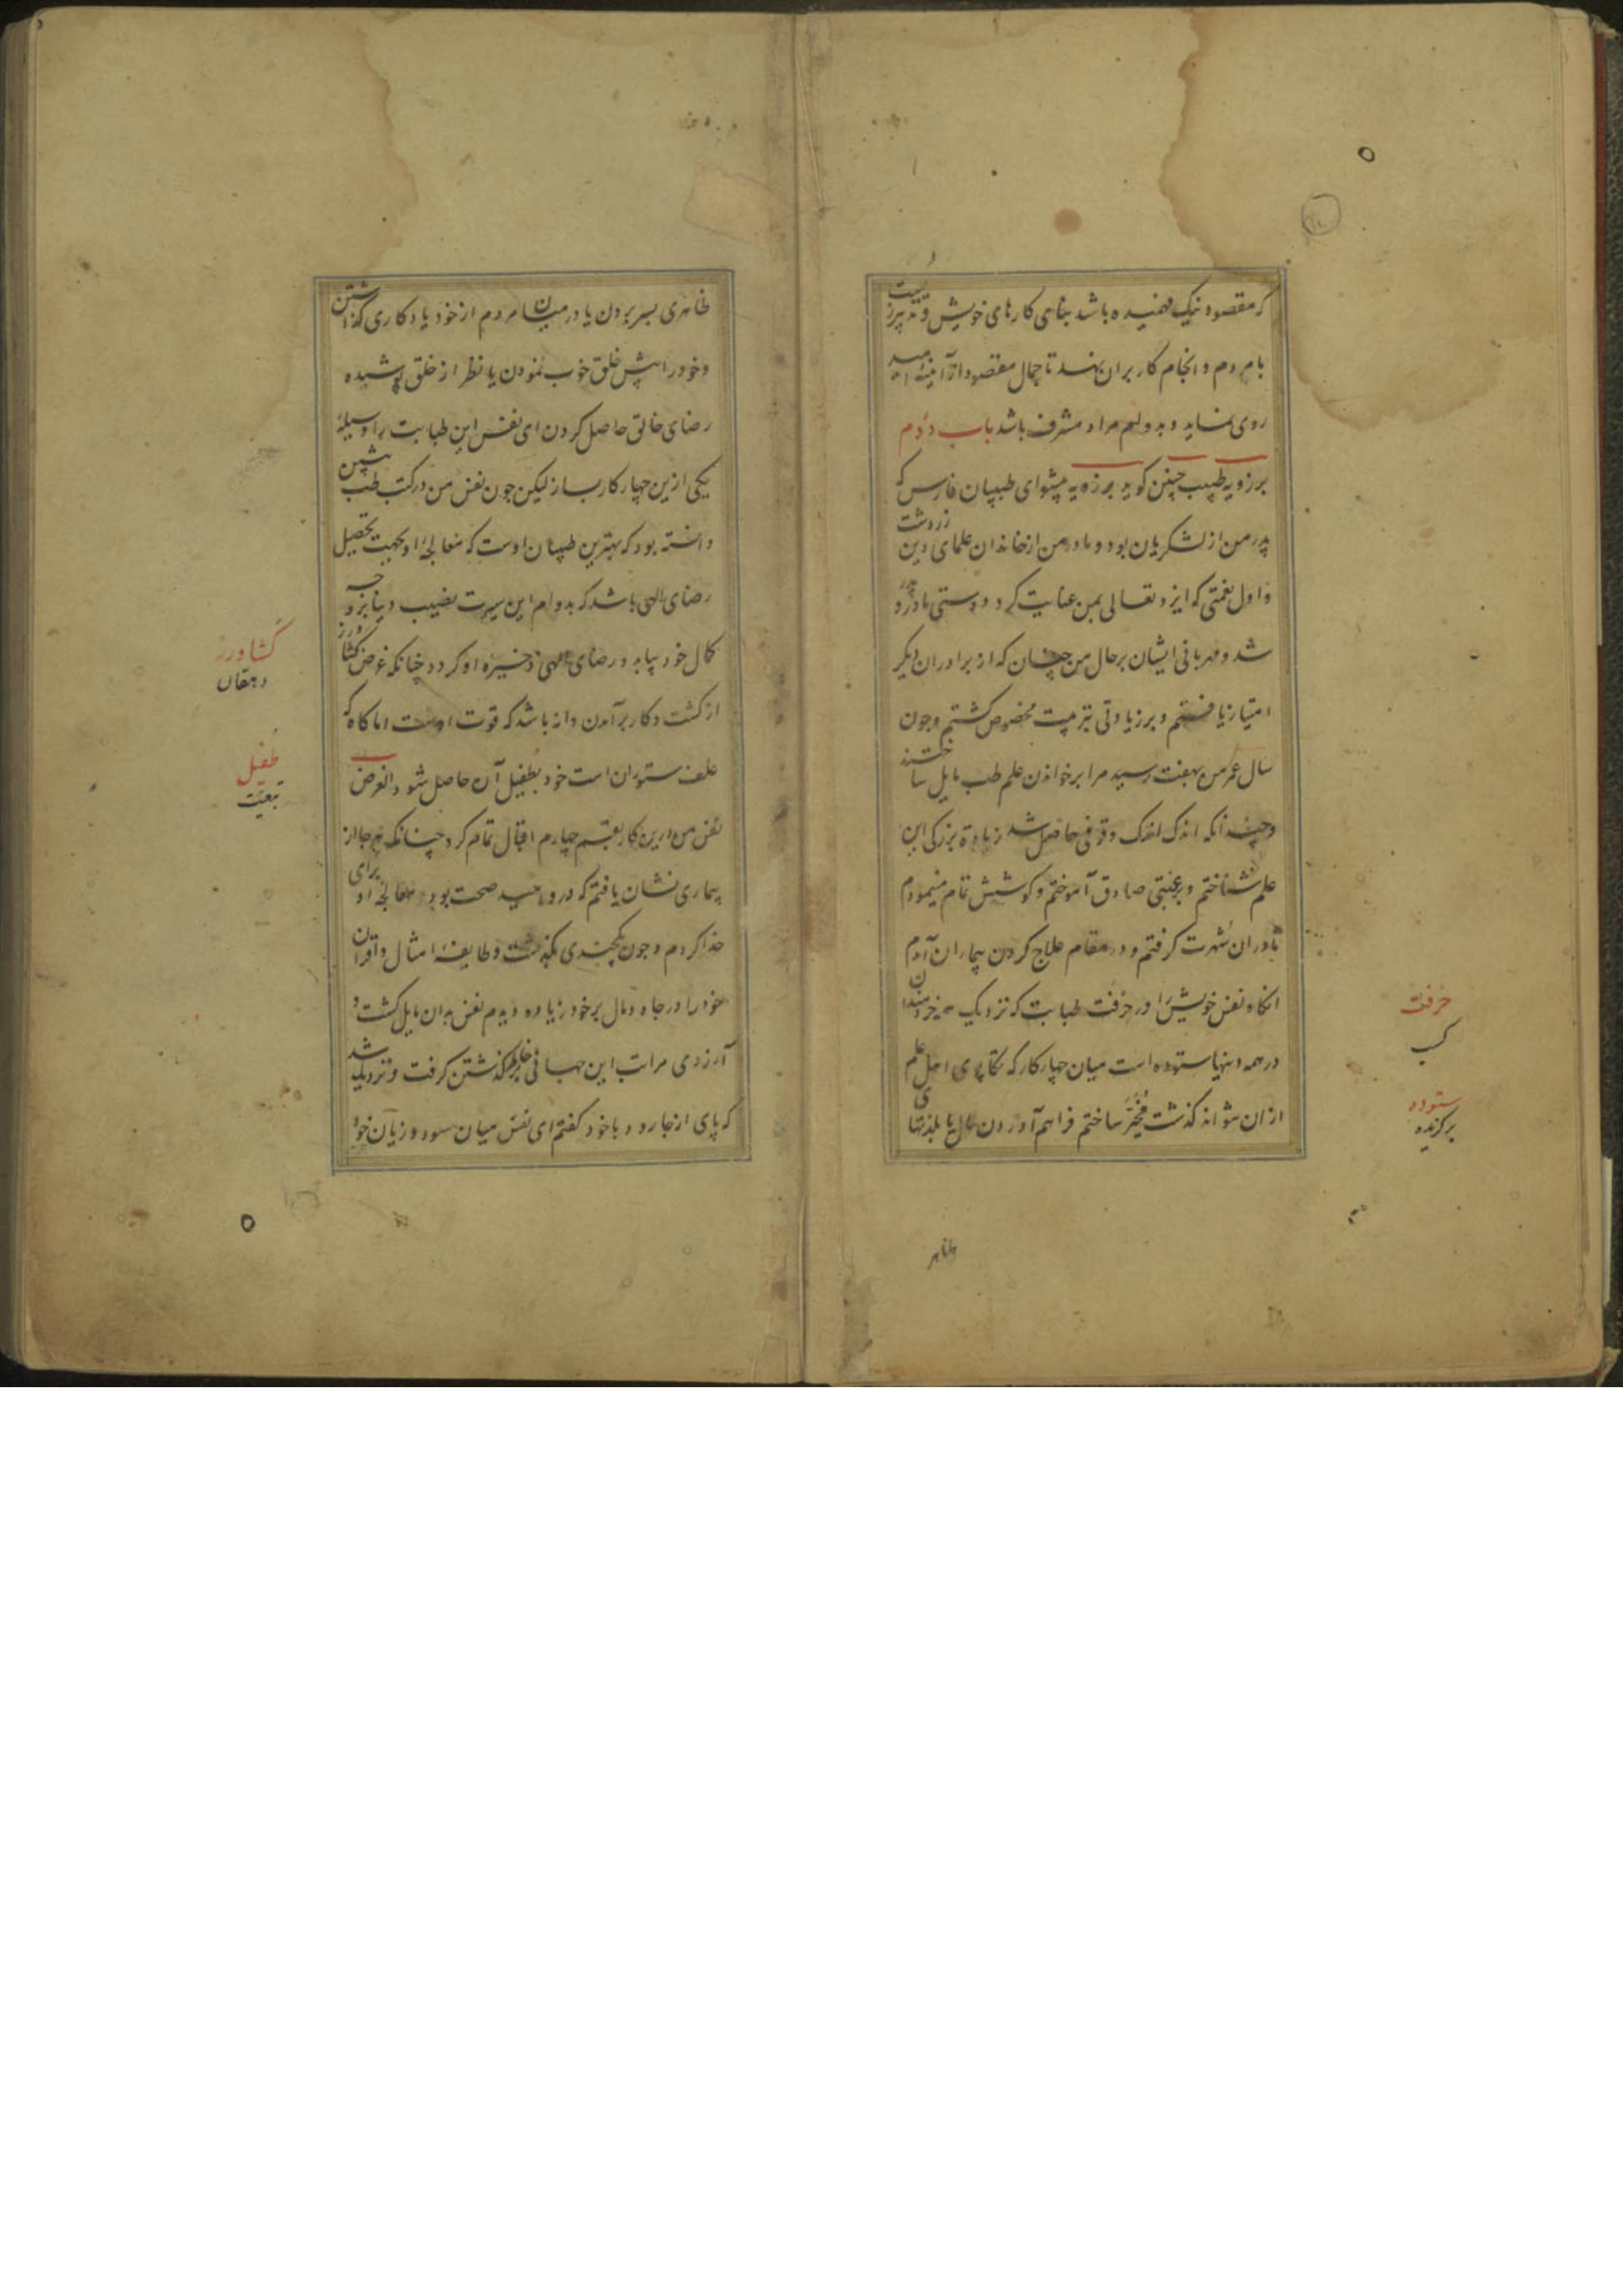 که مقصود نیک فهمیده باشد بنای کارهای خویش و تدبیر زیست
با مردم و انجام کار بران نهد تا جمال مقصود از آئینه امید
روی نماید و بدولت مراد مشرف باشد باب دوم
برزویه طبیب چنین گوید برزویه پیشوای طبیبان فارس که
پدر من از لشکریان بود و مادر من از خاندان علمای دین زردشت
و اول نعمتی که ایزد تعالی بمن عنایت کرد دوستی مادر و پدر
شد و مهربانی ایشان برحال من چنان که از برادران دیگر
امتیاز یافتم و بر زیادتی تربیت مخصوص گشتم و چون
سال عمر من بهفت رسید مرا برخواندن علم طب مایل ساختند
و چندانکه اندک اندک وقوفی حاصل شد زیاده بزرگی این
علم شناختم و برغبتی صادق آموختم و کوشش تمام مینمودم
تا دران شهرت گرفتم و در مقام علاج کردن بیماران آمدم
انگاه نفس خویش را در حرفت طبابت که نزدیک خردمندان
در همه دینها ستوده است میان چهار کار که تکاپوی اهل علم
ازان نتواند گذشت مخیر ساختم فراهم آوردن مال یا بلذتهای
ظاهر
حرفت
کسب
ستوده
برگزیده
ظاهری بسر بردن یا درمیان مردم از خود یادگاری گذاشتن
و خود را پیش خلق خوب نمودن یا نظر از خلق پوشیده
رضای خالق حاصل کردن ای نفس این طبابت را وسیله
یکی ازین چهار کار بساز لیکن چون نفس من در کتب طب پیشین
دانسته بود که بهترین طبیبان اوست که معالجه او بجهت تحصیل
رضای الهی باشد که بدوام این سیرت نصیب دنیا بر وجه
کمال خود بیابد و رضای الهی ذخیره او گردد چنانکه غرض کشاورز
از کشت و کار برآمدن دانه باشد که قوت اوست اما کاه که
علف ستوران است خود بطفیل آن حاصل شود الغرض
نفس من درین کار بقسم چهارم اقبال تمام کرد چنانکه هر جا از
بیماری نشان یافتم که درو امید صحت بود معالجه او برای
خدا کردم و چون یکچندی بگذشت و طایفه امثال و اقران
خود را در جاه و مال برخود زیاده دیدم نفس بدان مایل گشت و
آرزوی مراتب این جهانی بخاطر گذشتن گرفت و نزدیک شد
که پای از جا رود با خود گفتم ای نفس میان سود و زیان خود
کشاورز
دهقان
طفیل
تبعیت